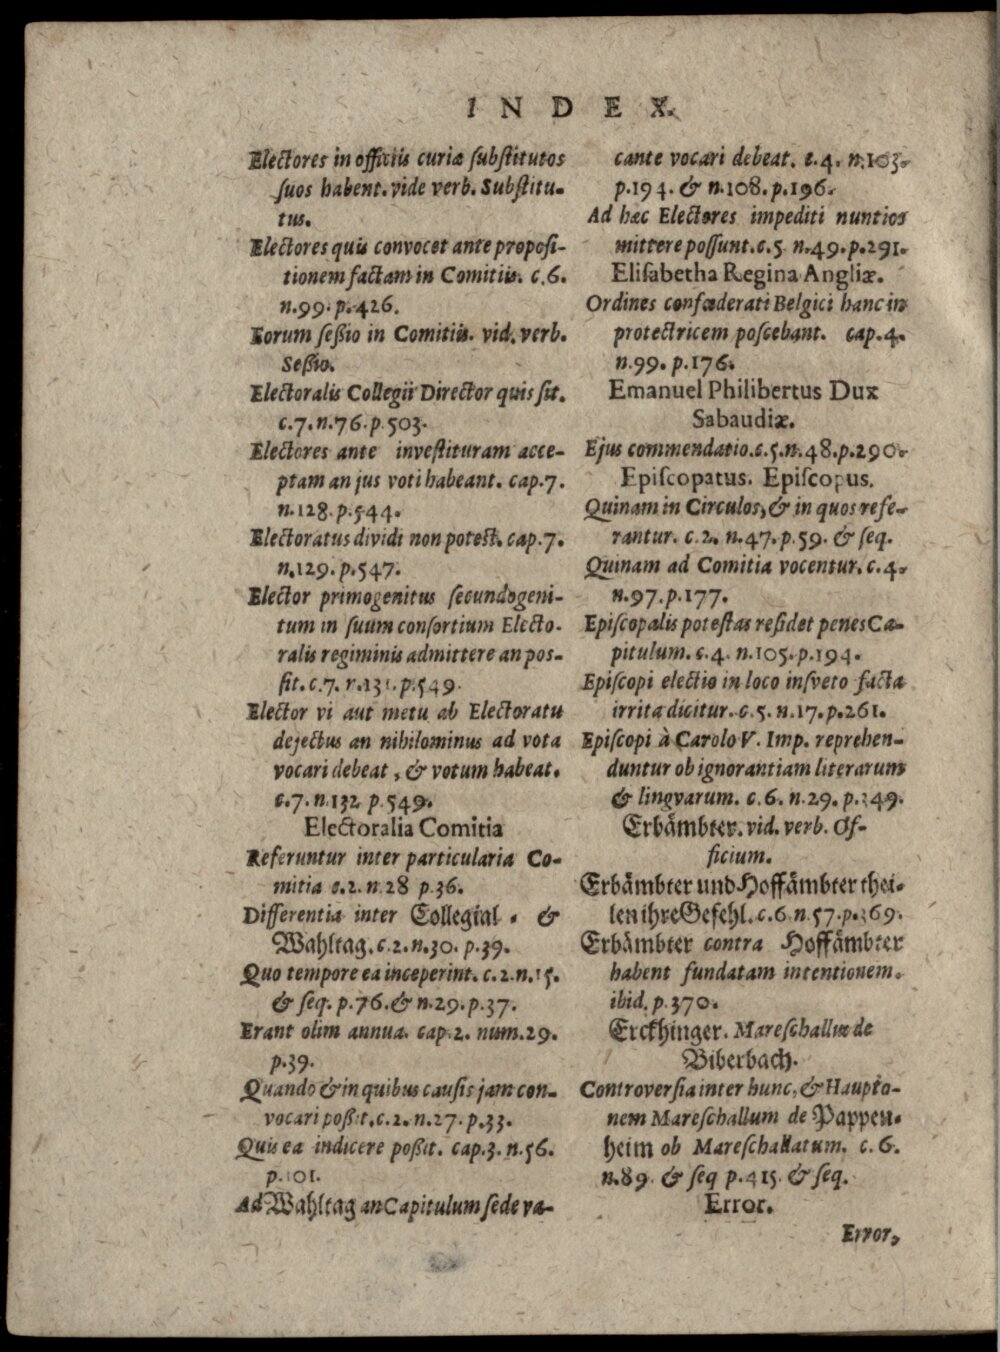 INDEX.
Electores in officiis curiæ ſubſtitutos
ſuos habent. vide verb. Subſtitu-
tus.
Electores quis convocet ante propoſi-
tionem factam in Comitiis. c.6.
n.99. p.426.
Eorum ſeßio in Comitiis. vid. verb.
Seßio.
Electoralis Collegii Director quis ſit.
c.7. n.76. p.503.
Electores ante inveſtituram acce-
ptam an jus voti habeant. cap.7.
n.128. p.544.
Electoratus dividi non poteſt. cap.7.
n.129. p.547.
Elector primogenitus ſecundogeni-
tum in ſuum conſortium Electo-
ralis regiminis admittere an poſ-
ſit. c.7. p.549.
Elector vi aut metu ab Electoratu
dejectus an nihilominus ad vota
vocari debeat, & votum habeat.
c.7. n.132. p.549.
Electoralia Comitia
Referuntur inter particularia Co-
mitia c.2. n.28 p.36.
Differentia inter Collegial- &
Wahltag. c.2. n.30. p.39.
Quo tempore ea inceperint. c.2. n.15.
& ſeq. p.76. & n.29. p.37.
Erant olim annua. cap.2. num.29.
p.39.
Quando & in quibus cauſis jam con-
vocari poßit. c.2. n.27. p.33.
Quis ea indicere poßit. cap.3. n.56.
p.101.
Ad Wahltag an Capitulum ſede va-
cante vocari debeat. c.4. n.103.
p.194. & n.108. p.196.
Ad hæc Electores impediti nuntios
mittere poſſunt. c.5. n.49. p.291.
Eliſabetha Regina Angliæ.
Ordines confœderati Belgici hanc in
protectricem poſcebant. cap.4.
n.99. p.176.
Emanuel Philibertus Dux
Sabaudiæ.
Ejus commendatio. c.5. n.48. p.290.
Epiſcopatus. Epiſcopus.
Quinam in Circulos, & in quos refe-
rantur. c.2. n.47. p.59. & ſeq.
Quinam ad Comitia vocentur. c.4.
n.97. p.177.
Epiſcopalis poteſtas reſidet penes Ca-
pitulum. c.4. n.105. p.194.
Epiſcopi electio in loco inſveto facta
irrita dicitur. c.5. n.17. p.261.
Epiſcopi à Carolo V. Imp. reprehen-
duntur ob ignorantiam literarum
& lingvarum. c.6. n.29. p.349.
Erbämbter. vid. verb. Of-
ficium.
Erbämbter und Hoffämbter thei-
len ihre Gefehl. c.6 n.57. p.369.
Erbämbter contra Hoffämbter
habent fundatam intentionem.
ibid. p.370.
Erckhinger. Mareſchallus de
Biberbach.
Controverſia inter hunc, & Haupto-
nem Mareſchallum de Pappen-
heim ob Mareſchallatum. c.6.
n.89. & ſeq p.415. & ſeq.
Error.
Error,